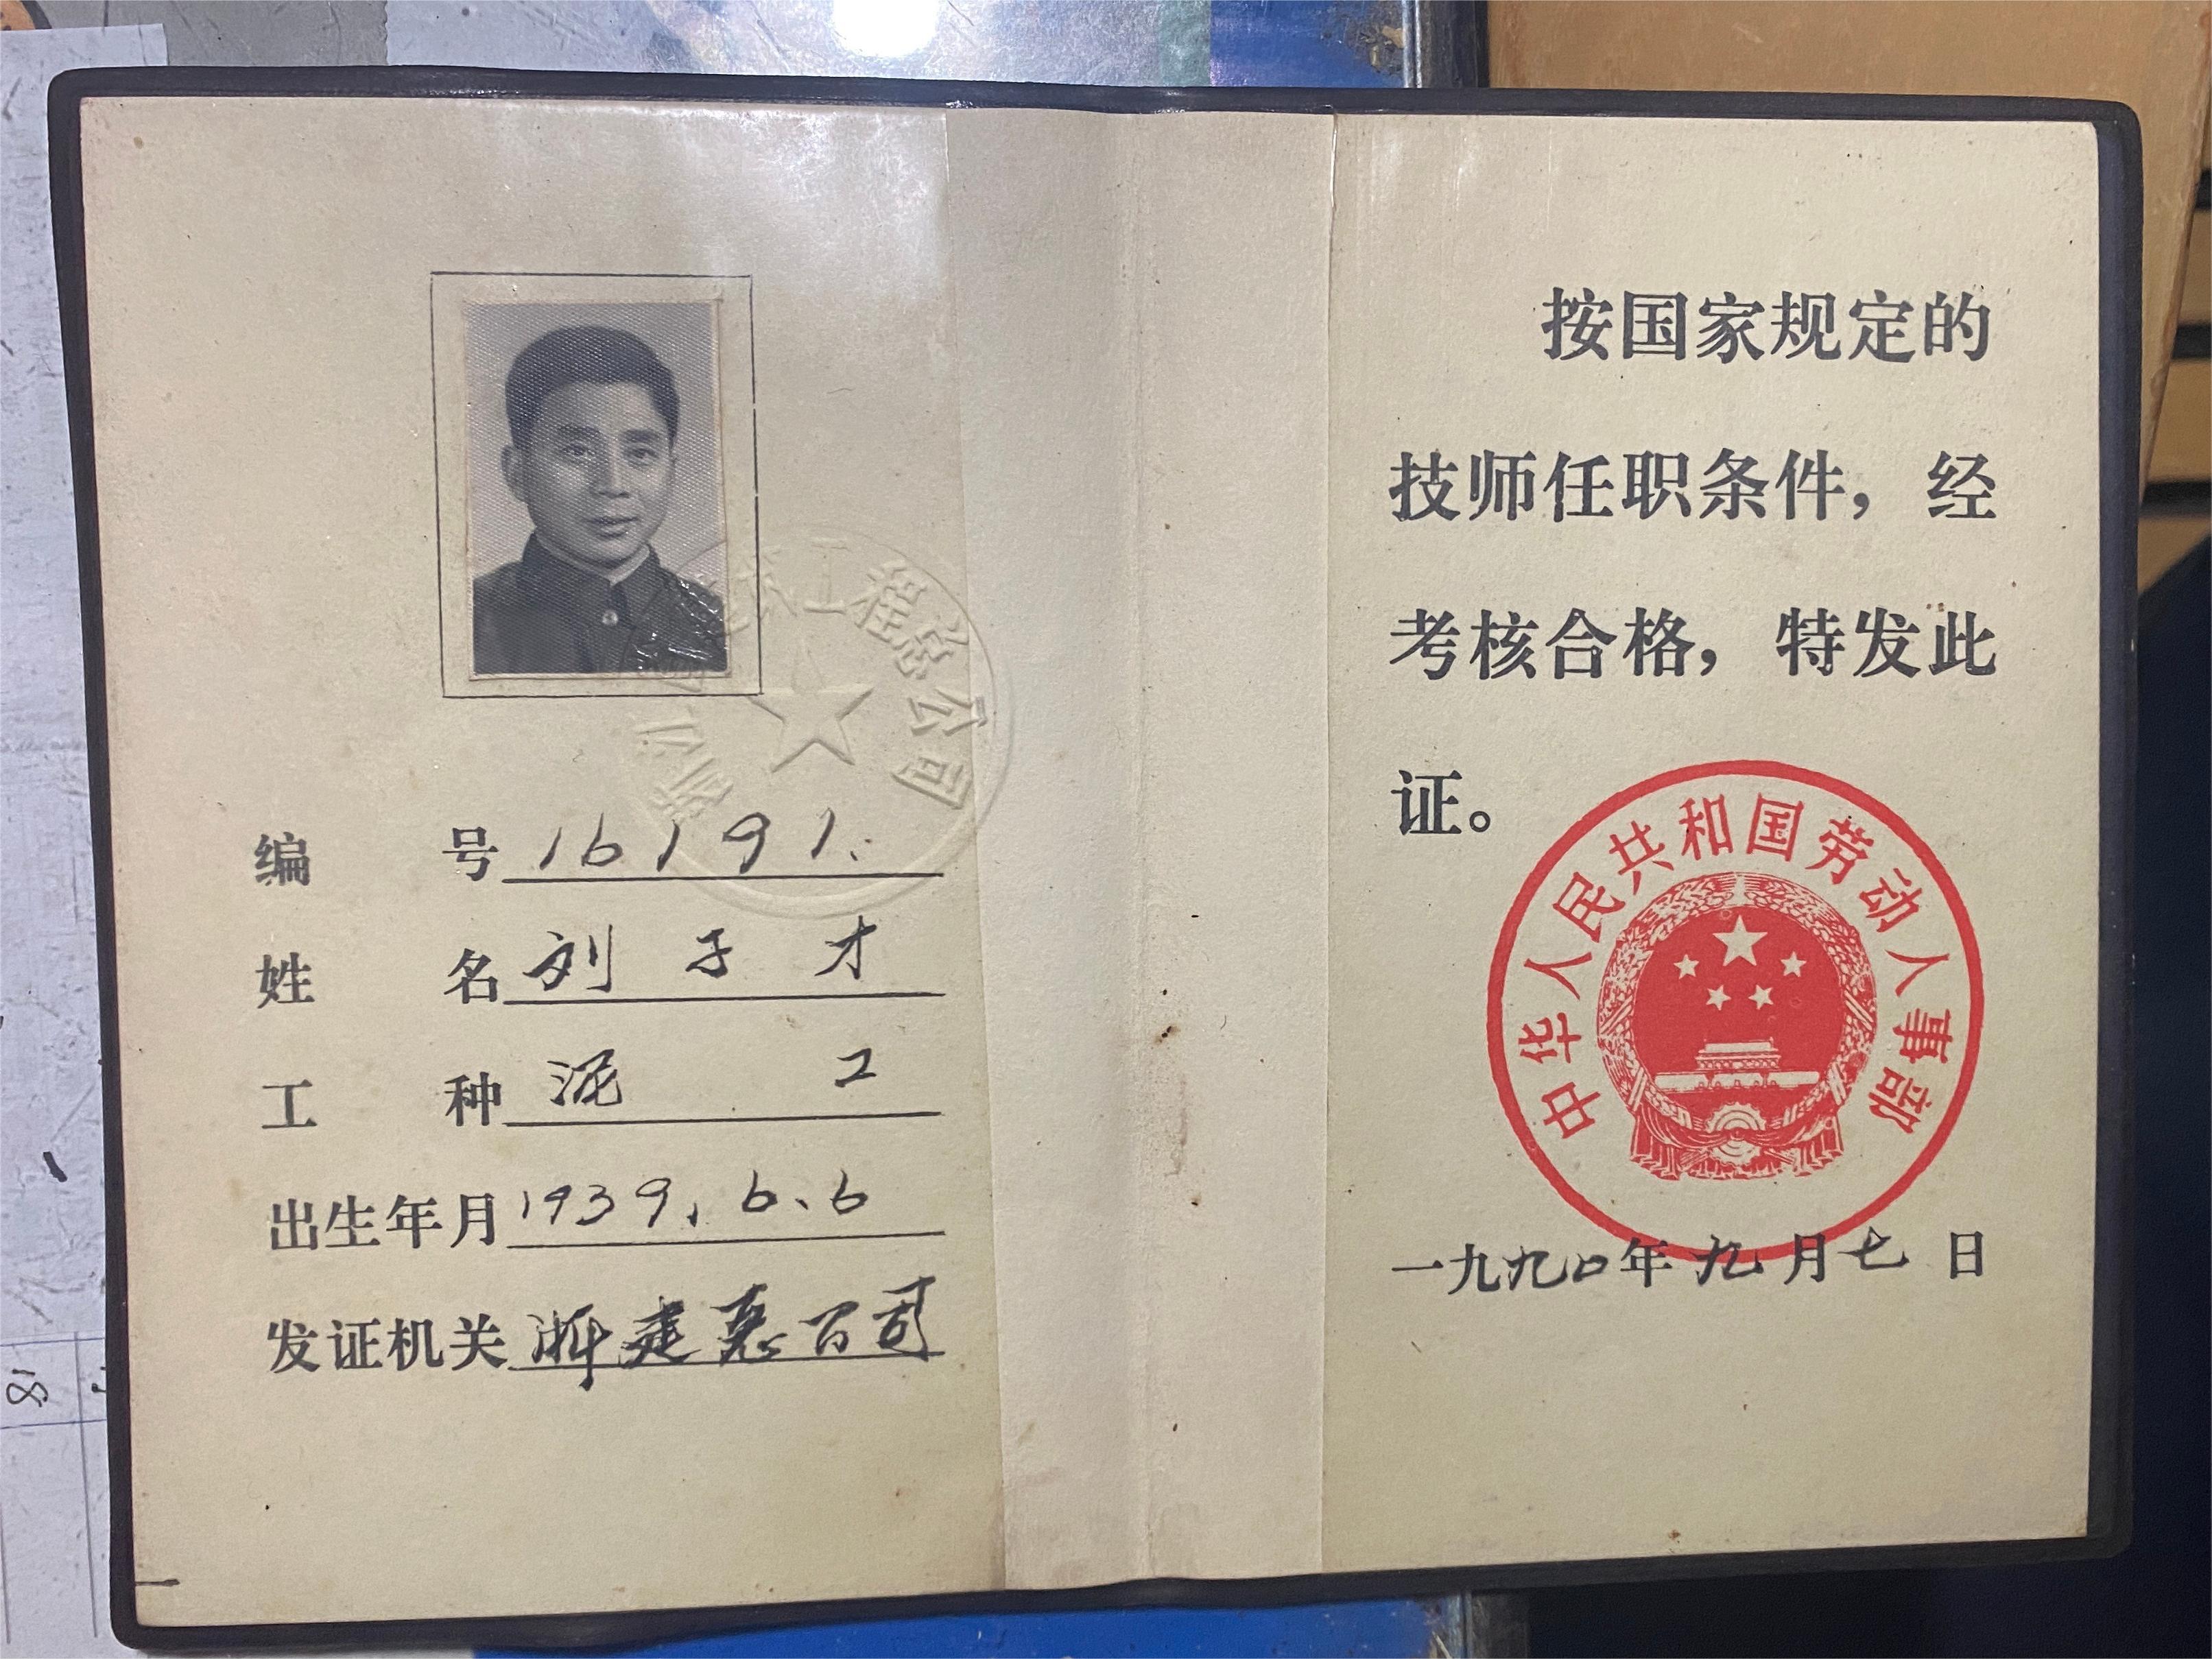 浙江建筑工程总公司
编号 16191.
姓名 刘子才
工种 泥工
出生年月 1939.6.6
发证机关 浙建总公司
按国家规定的
技师任职条件，经
考核合格，特发此
证。
中华人民共和国劳动人事部
一九九〇年九月七日
18